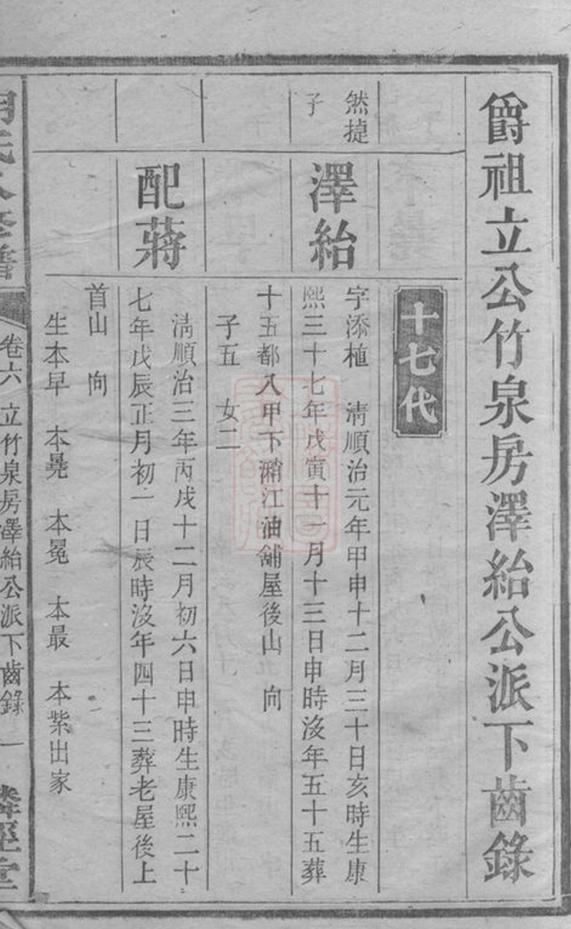 爵祖立公竹泉房澤紿公派下齒錄
十七代
然捷
子
澤紿
字添植 清順治元年甲申十二月三十日亥時生康
熙三十七年戊寅十一月十三日申時沒年五十五葬
十五都入甲下瀰江油舖屋後山 向
子五 女二
配蔣
清順治三年丙戌十二月初六日申時生康熙二十
七年戊辰正月初一日辰時沒年四十三葬老屋後上
首山 向
生本早 本晃 本冕 本最 本紫出家
氏 修譜
卷六 立竹泉房澤紿公派下齒錄 一
堂